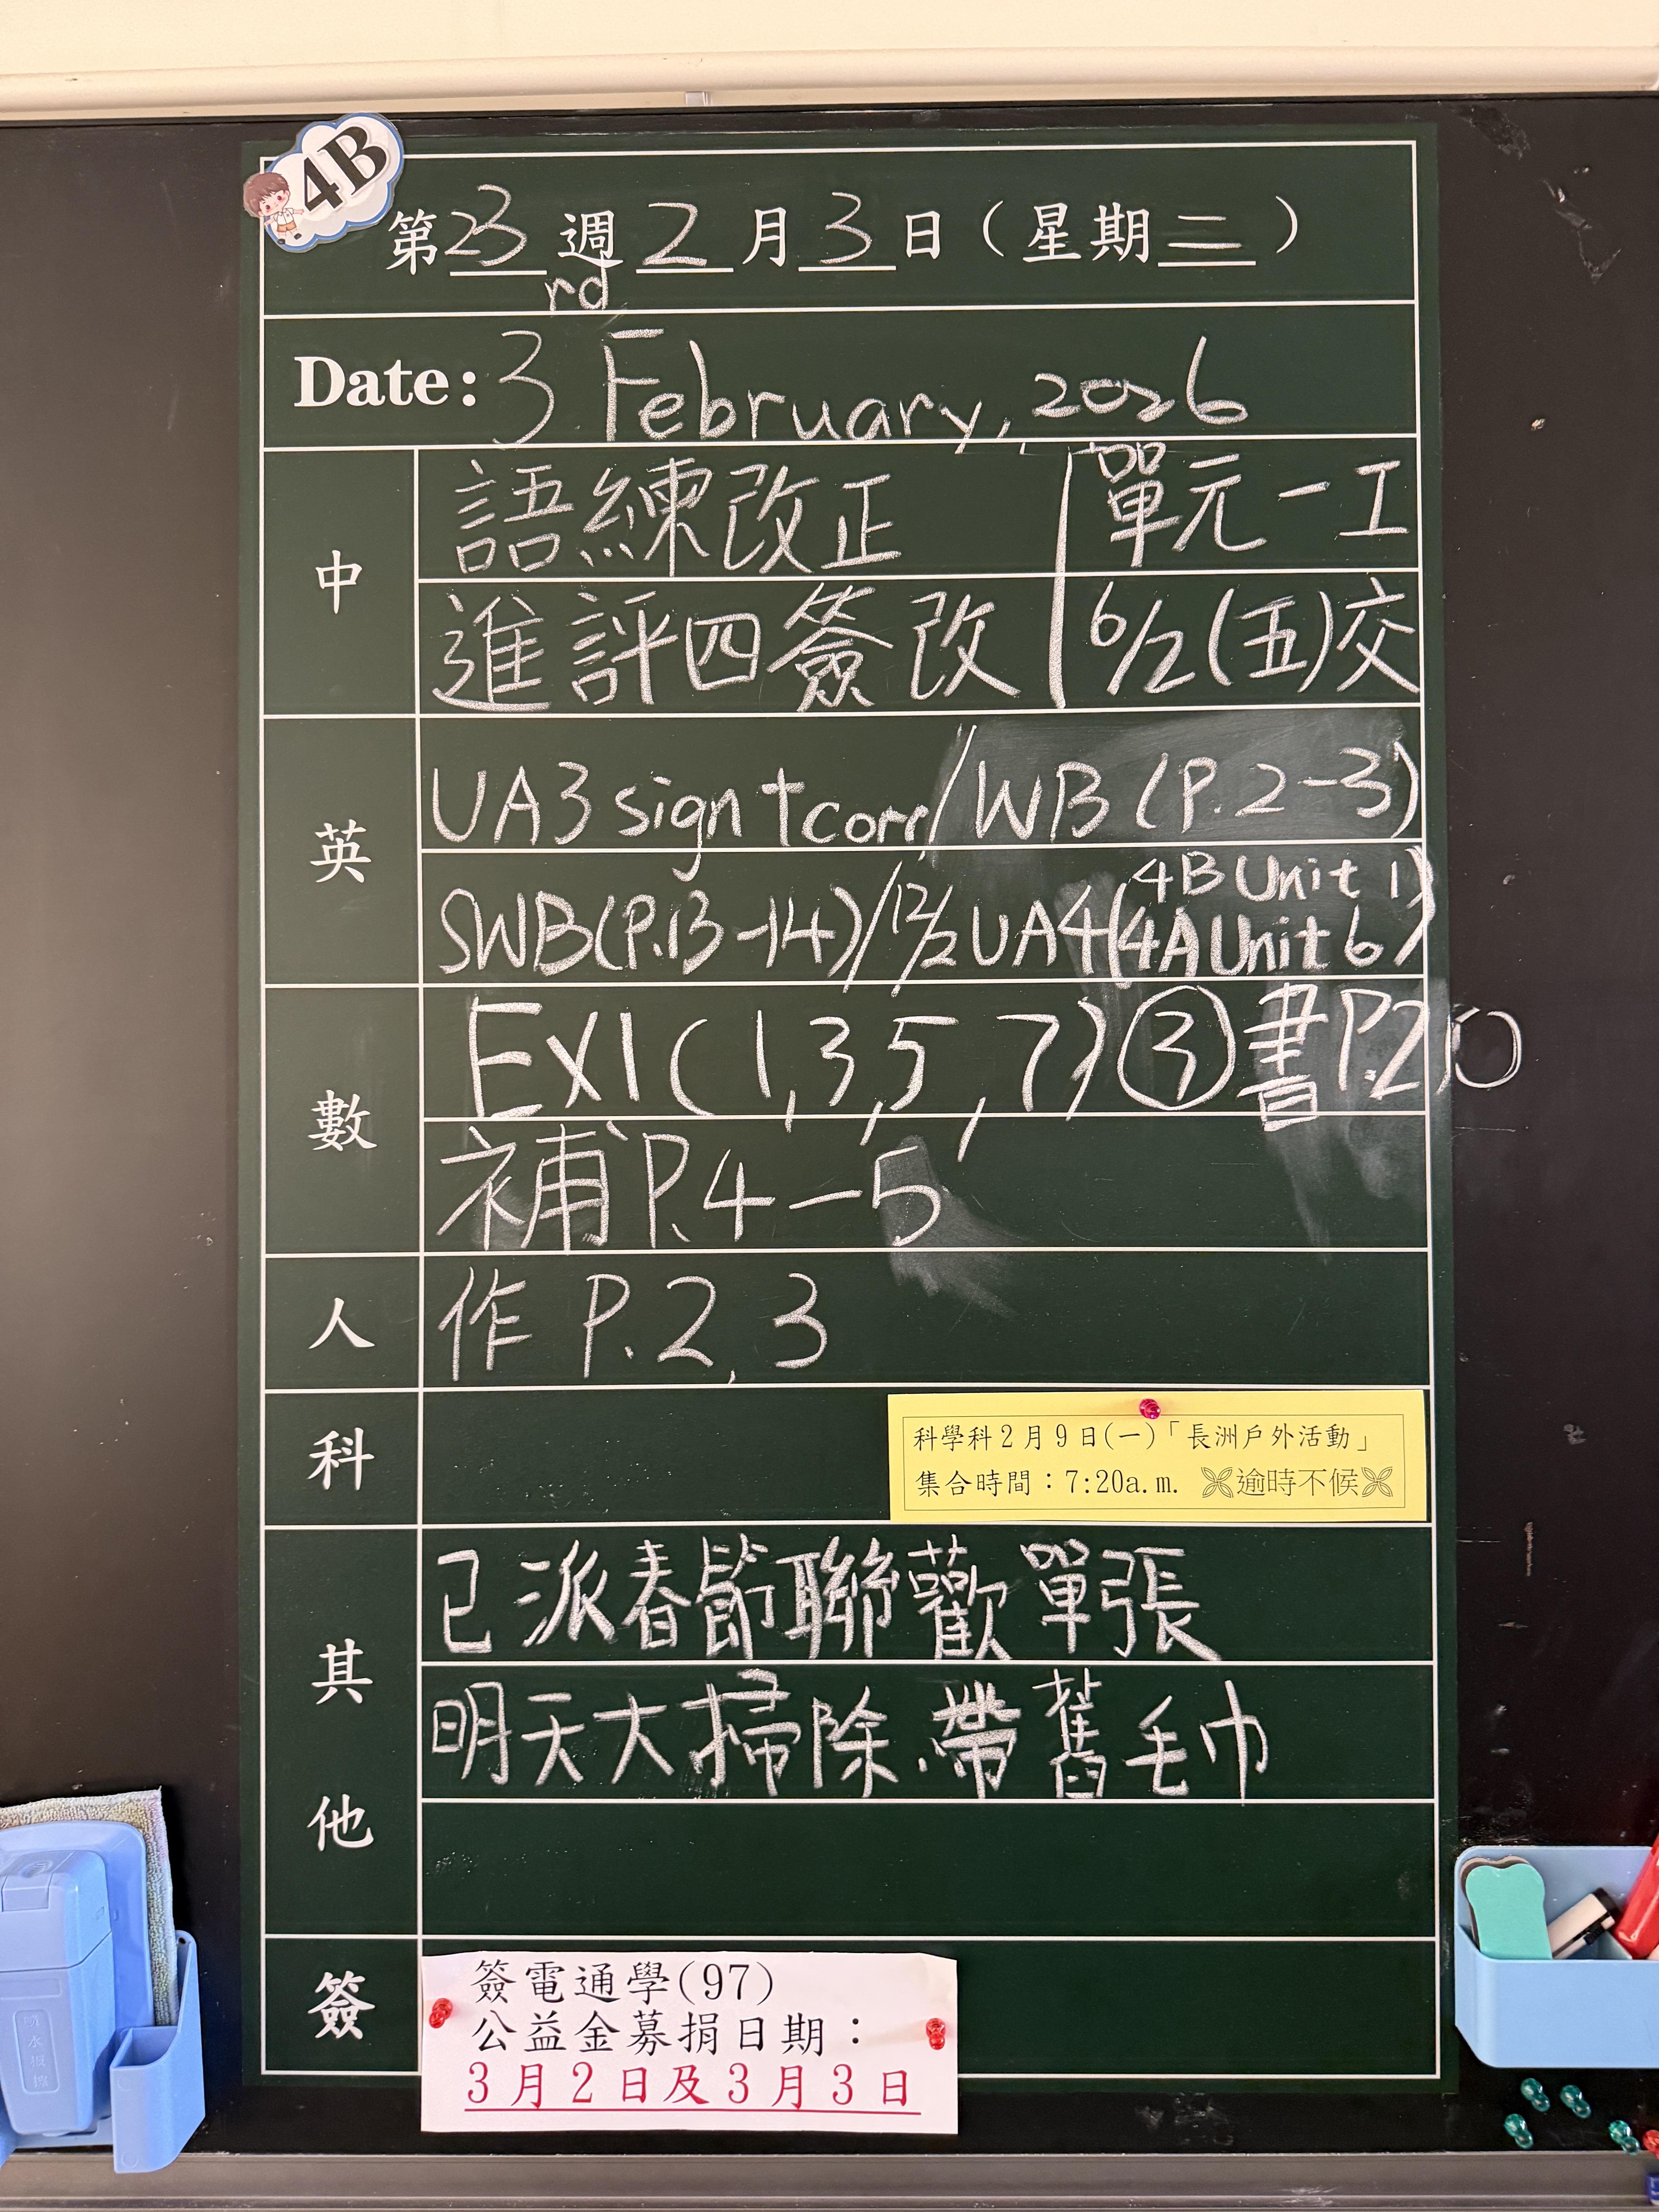 4B
第23週2月3日(星期二)
rd
Date: 3 February, 2026
中
語練改正 單元一工
進評四簽改 6/2(五)交
英
UA3 sign + corr / WB (P.2-3)
SWB(P.13-14) / 12/2 UA4 (4B Unit 1
4A Unit 6)
數
EX1(1,3,5,7) ③ 書P.20
補P.4-5
人
作 P.2,3
科
科學科2月9日(一)「長洲戶外活動」
集合時間:7:20a.m. 逾時不候
其他
已派春節聯歡單張
明天大掃除,帶舊毛巾
簽
簽電通學(97)
公益金募捐日期:
3月2日及3月3日